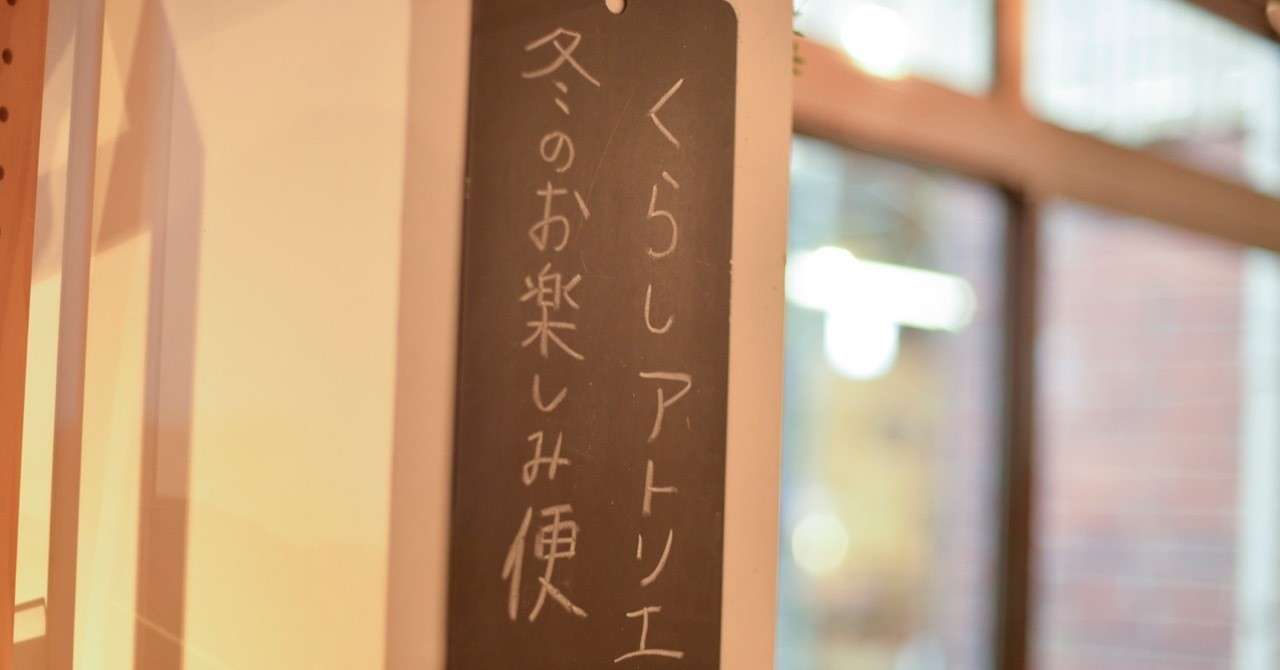 くらしアトリエ
冬のお楽しみ便